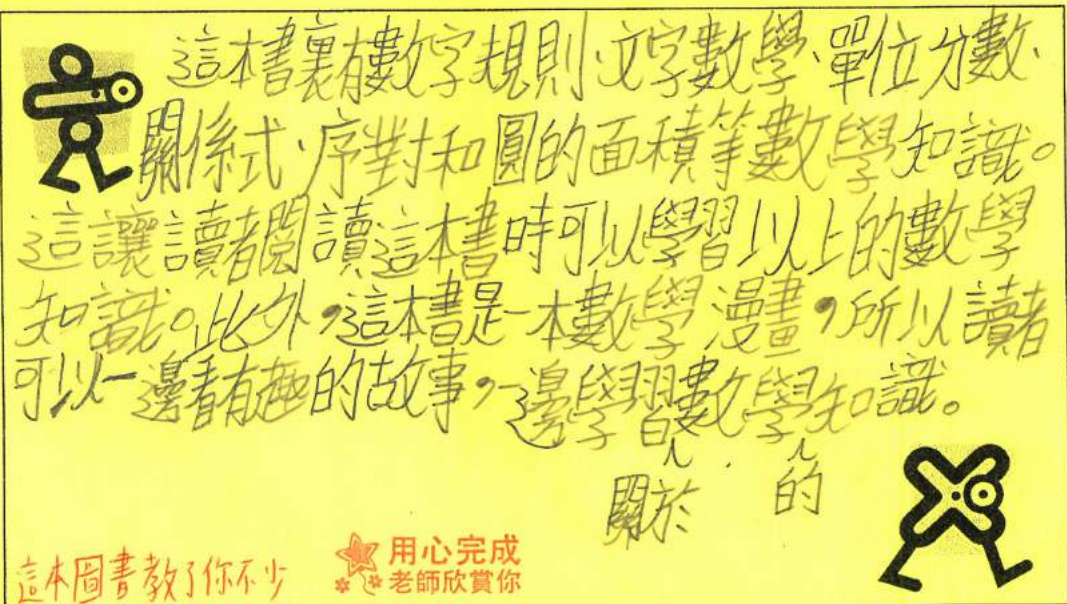 這本書裏有數字規則、文字數學、單位分數、
關係式、序對和圓的面積等數學知識。
這讓讀者閱讀這本書時可以學習以上的數學
知識。此外，這本書是一本數學漫畫，所以讀者
可以一邊看有趣的故事，一邊學習關於數學的知識。
這本圖書教了你不少
用心完成
老師欣賞你